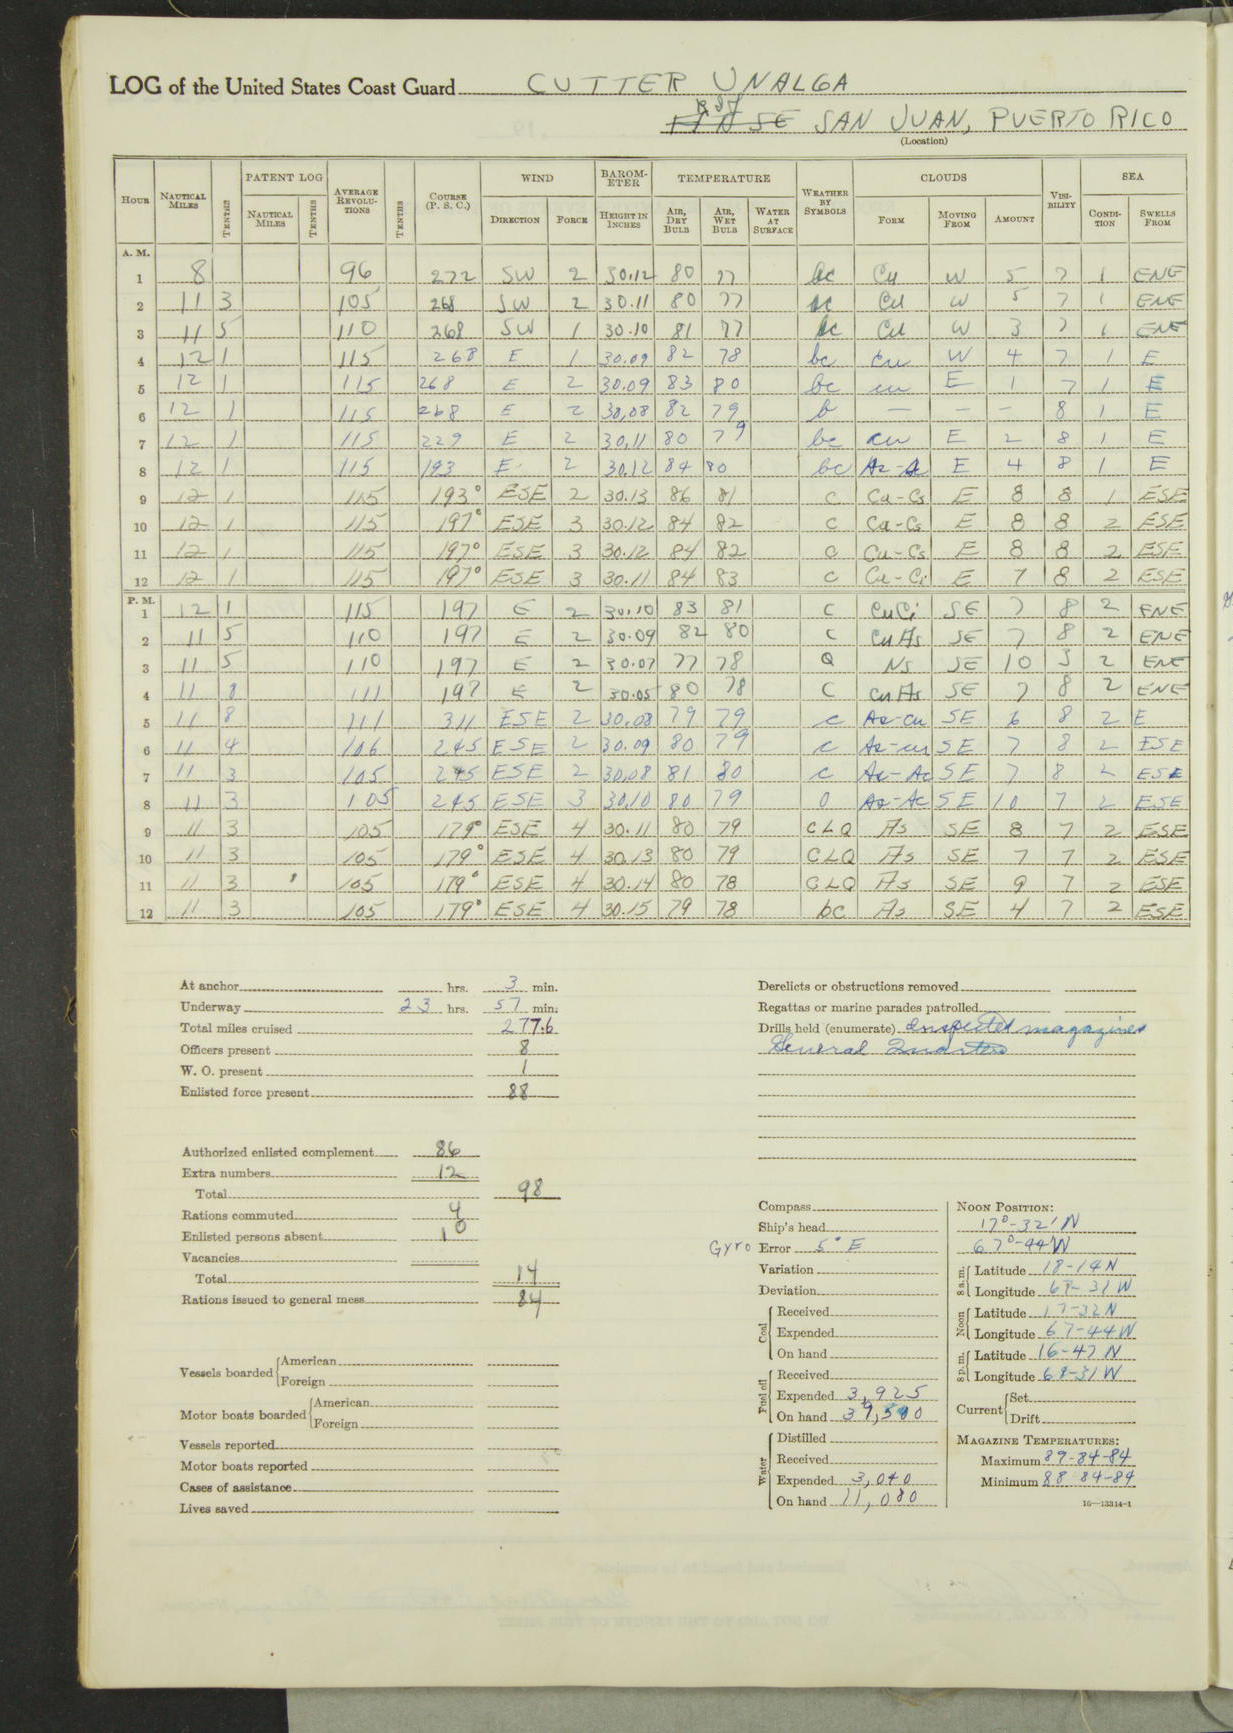 LOG of the United States Coast Guard CUTTER UNALGA
SAN JUAN, PUERTO RICO
(Location)
HOUR NAUTICAL MILES TENTHS PATENT LOG NAUTICAL MILES TENTHS AVERAGE REVOLUTIONS TENTHS COURSE (P. S. C.) WIND DIRECTION FORCE BAROMETER HEIGHT IN INCHES TEMPERATURE AIR, DRY BULB AIR, WET BULB WATER AT SURFACE WEATHER BY SYMBOLS CLOUDS FORM MOVING FROM AMOUNT VISIBILITY SEA CONDITION SWELLS FROM
A. M.
1 8 96 272 SW 2 30.12 80 77 bc Cu W 5 7 1 ENE
2 11 3 105 268 SW 2 30.11 80 77 bc Cu W 5 7 1 ENE
3 11 5 110 268 SW 1 30.10 81 77 bc Cu W 3 7 1 ENE
4 12 1 115 268 E 1 30.09 82 78 bc cu W 4 7 1 E
5 12 1 115 268 E 2 30.09 83 80 bc cu E 1 7 1 E
6 12 1 115 268 E 2 30.08 82 79 b — — — 8 1 E
7 12 1 115 229 E 2 30.11 80 79 bc cu E 2 8 1 E
8 12 1 115 193 E 2 30.12 84 80 bc E 4 8 1 E
9 12 1 115 193° ESE 2 30.13 86 81 c Cu-Cs E 8 8 1 ESE
10 12 1 115 197° ESE 3 30.12 84 82 c Cu-Cs E 8 8 2 ESE
11 12 1 115 197° ESE 3 30.12 84 82 c Cu-Cs E 8 8 2 ESE
12 12 1 115 197° ESE 3 30.11 84 83 c Cu-Ci E 7 8 2 ESE
P. M.
1 12 1 115 197 E 2 30.10 83 81 C CuCi SE 7 8 2 ENE
2 11 5 110 197 E 2 30.09 82 80 C CuAs SE 7 8 2 ENE
3 11 5 110 197 E 2 30.07 77 78 Q Ns SE 10 3 2 ENE
4 11 8 111 197 E 2 30.05 80 78 C CuAs SE 7 8 2 ENE
5 11 8 111 311 ESE 2 30.08 79 79 c Ac-cu SE 6 8 2 E
6 11 4 106 245 ESE 2 30.09 80 79 c Ac-cu SE 7 8 2 ESE
7 11 3 105 245 ESE 2 30.08 81 80 c As-Ac SE 7 8 2 ESE
8 11 3 105 245 ESE 3 30.10 80 79 O As-Ac SE 10 7 2 ESE
9 11 3 105 179° ESE 4 30.11 80 79 CLQ As SE 8 7 2 ESE
10 11 3 105 179° ESE 4 30.13 80 79 CLQ As SE 7 7 2 ESE
11 11 3 105 179° ESE 4 30.14 80 78 CLQ As SE 9 7 2 ESE
12 11 3 105 179° ESE 4 30.15 79 78 bc As SE 4 7 2 ESE
At anchor hrs. 3 min.
Underway 23 hrs. 57 min.
Total miles cruised 277.6
Officers present 8
W. O. present 1
Enlisted force present 88
Authorized enlisted complement 86
Extra numbers 12
Total 98
Rations commuted 4
Enlisted persons absent 10
Vacancies
Total 14
Rations issued to general mess 84
Vessels boarded American
Foreign
Motor boats boarded American
Foreign
Vessels reported
Motor boats reported
Cases of assistance
Lives saved
Derelicts or obstructions removed
Regattas or marine parades patrolled
Drills held (enumerate) Inspected magazines
General Quarters
Compass
Ship's head
Gyro Error 5° E
Variation
Deviation
Coal Received
Expended
On hand
Fuel oil Received
Expended 3,925
On hand
Water Distilled
Received
Expended 3,040
On hand 11,080
NOON POSITION:
17°-32' N
67°-44 W
8 a.m. Latitude 18-14 N
Longitude 67-31 W
Noon Latitude 17-32 N
Longitude 67-44 W
8 p.m. Latitude 16-47 N
Longitude
Current Set
Drift
MAGAZINE TEMPERATURES:
Maximum 89-84-84
Minimum 88-84-84
16—13314-1